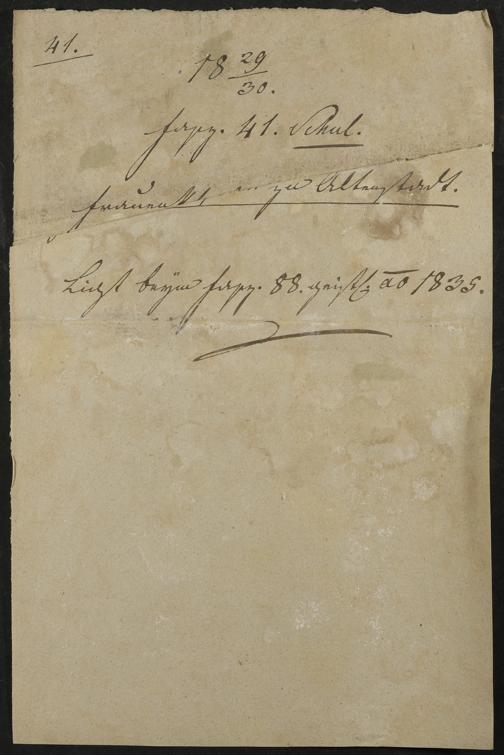 41.
18 29/30.
Fasz. 41. Schul.
zu Altenstadt.
Liegt beym Fasz. 88. geistl: ao 1835.